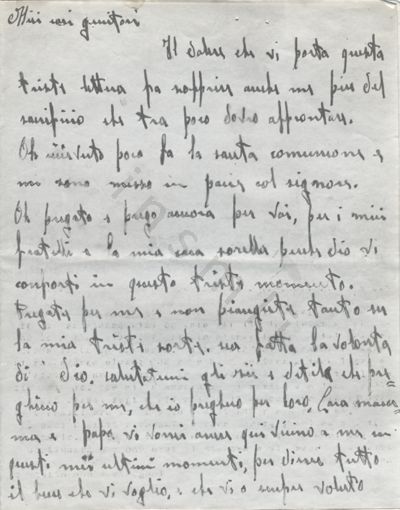 Miei cari genitori
Il dolore che vi porta questa
triste lettera fa soffrire anche me piu del
sacrificio che tra poco dovro affrontare.
Oh ricevuto poco fa la santa comunione e
mi sono messo in pace col signore.
Oh pregato e prego ancora per voi, per i miei
fratelli e la mia cara sorella perche dio vi
conforti in questo triste momento.
pregate per me e non piangiete tanto su
la mia triste sorte. sia fatta la volonta
di dio. salutatemi gli zii e ditile che pre-
ghino per me, che io preghero per loro, Cara mam-
ma e papa vi vorrei avere qui vicino a me in
questi miei ultimi momenti, per dirvi tutto
il bene che vi voglio, e che vi o sempre voluto